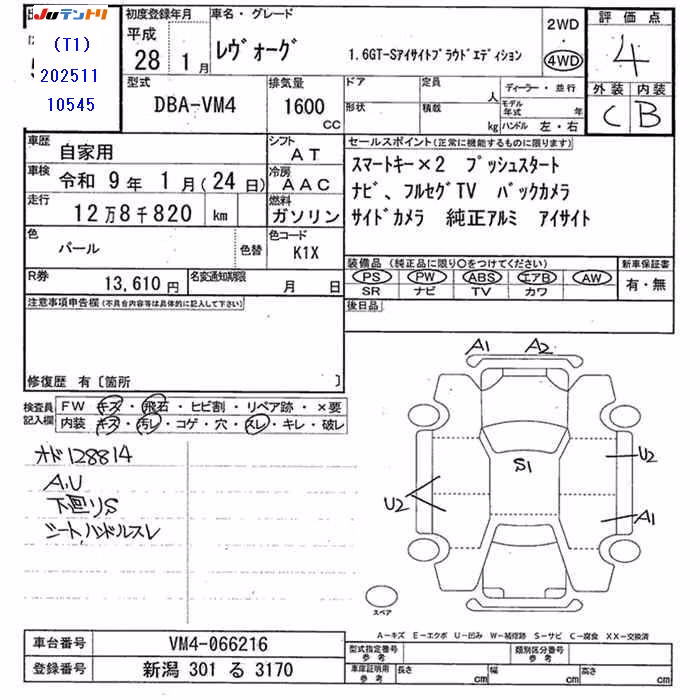 JUテントリ
(T1)
202511
10545
初度登録年月
平成
28 1月
車名・グレード
レヴォーグ 1.6GT-Sアイサイトプラウドエディション
2WD
・
4WD
評価点
4
外装 内装
C B
型式
DBA-VM4
排気量
1600
CC
ドア
形状
定員
人
積載
kg
ディーラー・並行
モデル年式 年
ハンドル 左・右
車歴
自家用
シフト
AT
車検
令和 9年 1月(24日)
冷房
AAC
走行
12万8千820 km
燃料
ガソリン
色
パール
色替
色コード
K1X
R券
13,610円
名変通知期限
月 日
セールスポイント(正常に機能するものに限ります)
スマートキー×2 プッシュスタート
ナビ、フルセグTV バックカメラ
サイドカメラ 純正アルミ アイサイト
装備品(純正品に限り〇をつけてください)
PS PW ABS エアB AW
SR ナビ TV カワ
新車保証書
有・無
後日品
注意事項申告欄(不具合内容等は具体的に記入して下さい)
修復歴 有〔箇所 〕
検査員
記入欄
FW キズ・飛石・ヒビ割・リペア跡・×要
内装 キズ・汚レ・コゲ・穴・スレ・キレ・破レ
オド128814
A.U
下回りS
シートハンドルスレ
A1 A2
S1
U2
U2
A1
スペア
A−キズ E−エクボ U−凹み W−補修跡 S−サビ C−腐食 XX−交換済
車台番号
VM4-066216
登録番号
新潟 301 る 3170
型式指定番号
参考
類別区分番号
参考
車庫証明用
参考
長さ cm
幅 cm
高さ cm